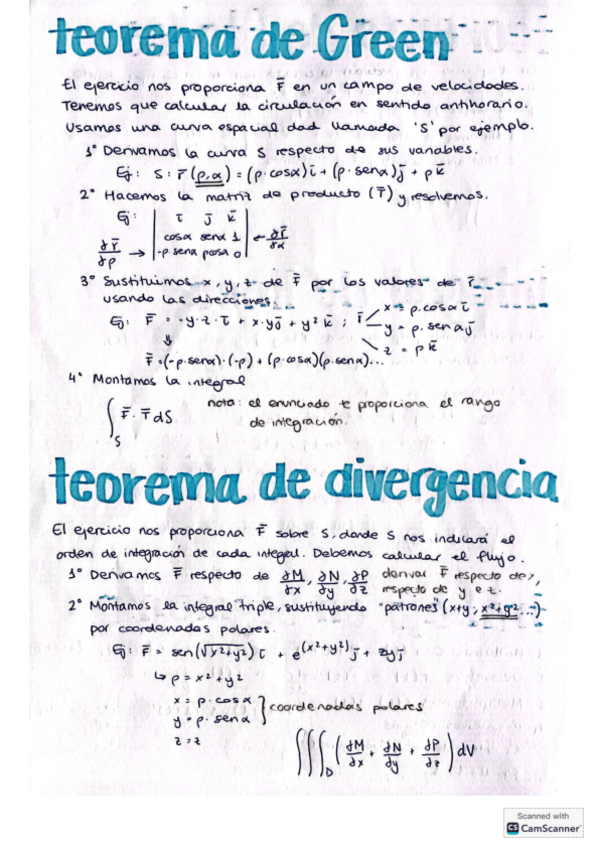 teorema de Green
El ejercicio nos proporciona F̄ en un campo de velocidades.
Tenemos que calcular la circulación en sentido antihorario.
Usamos una curva espacial dad llamada 'S' por ejemplo.
1° Derivamos la curva S respecto de sus variables.
Ej: S: r̄ (ρ,α) = (ρ·cosα)ī + (ρ·senα)j̄ + ρk̄
2° Hacemos la matriz de producto (T̄) y resolvemos.
Ej: | ī j̄ k̄ |
∂r̄/∂ρ → | cosα senα 1 | ← ∂r̄/∂α
| -ρ.senα ρcosα 0 |
3° Sustituimos x, y, z de F̄ por los valores de r̄
usando las direcciones.
Ej: F̄ = -y·z·ī + x·yj̄ + y² k̄ ; r̄ x = ρ.cosα ī
y = ρ.senα j̄
z = ρ k̄
↓
F̄ = (-ρ.senα)·(-ρ) + (ρ·cosα)(ρ.senα)...
4° Montamos la integral
∫S F̄·T̄ dS
nota: el enunciado te proporciona el rango
de integración.
teorema de divergencia
El ejercicio nos proporciona F̄ sobre S, donde S nos indicará el
orden de integración de cada integral. Debemos calcular el flujo.
1° Derivamos F̄ respecto de ∂M/∂x, ∂N/∂y, ∂P/∂z derivar F̄ respecto de x,
respecto de y e z.
2° Montamos la integral triple, sustituyendo "patrones" (x+y; x²+y²...)
por coordenadas polares.
Ej: F̄ = sen(√x²+y²) ī + e^(x²+y²) j̄ + zyj̄
↳ ρ = x²+y²
x = ρ·cosα
y = ρ.senα } coordenadas polares
z = z
∭D (∂M/∂x + ∂N/∂y + ∂P/∂z) dV
Scanned with
CS CamScanner